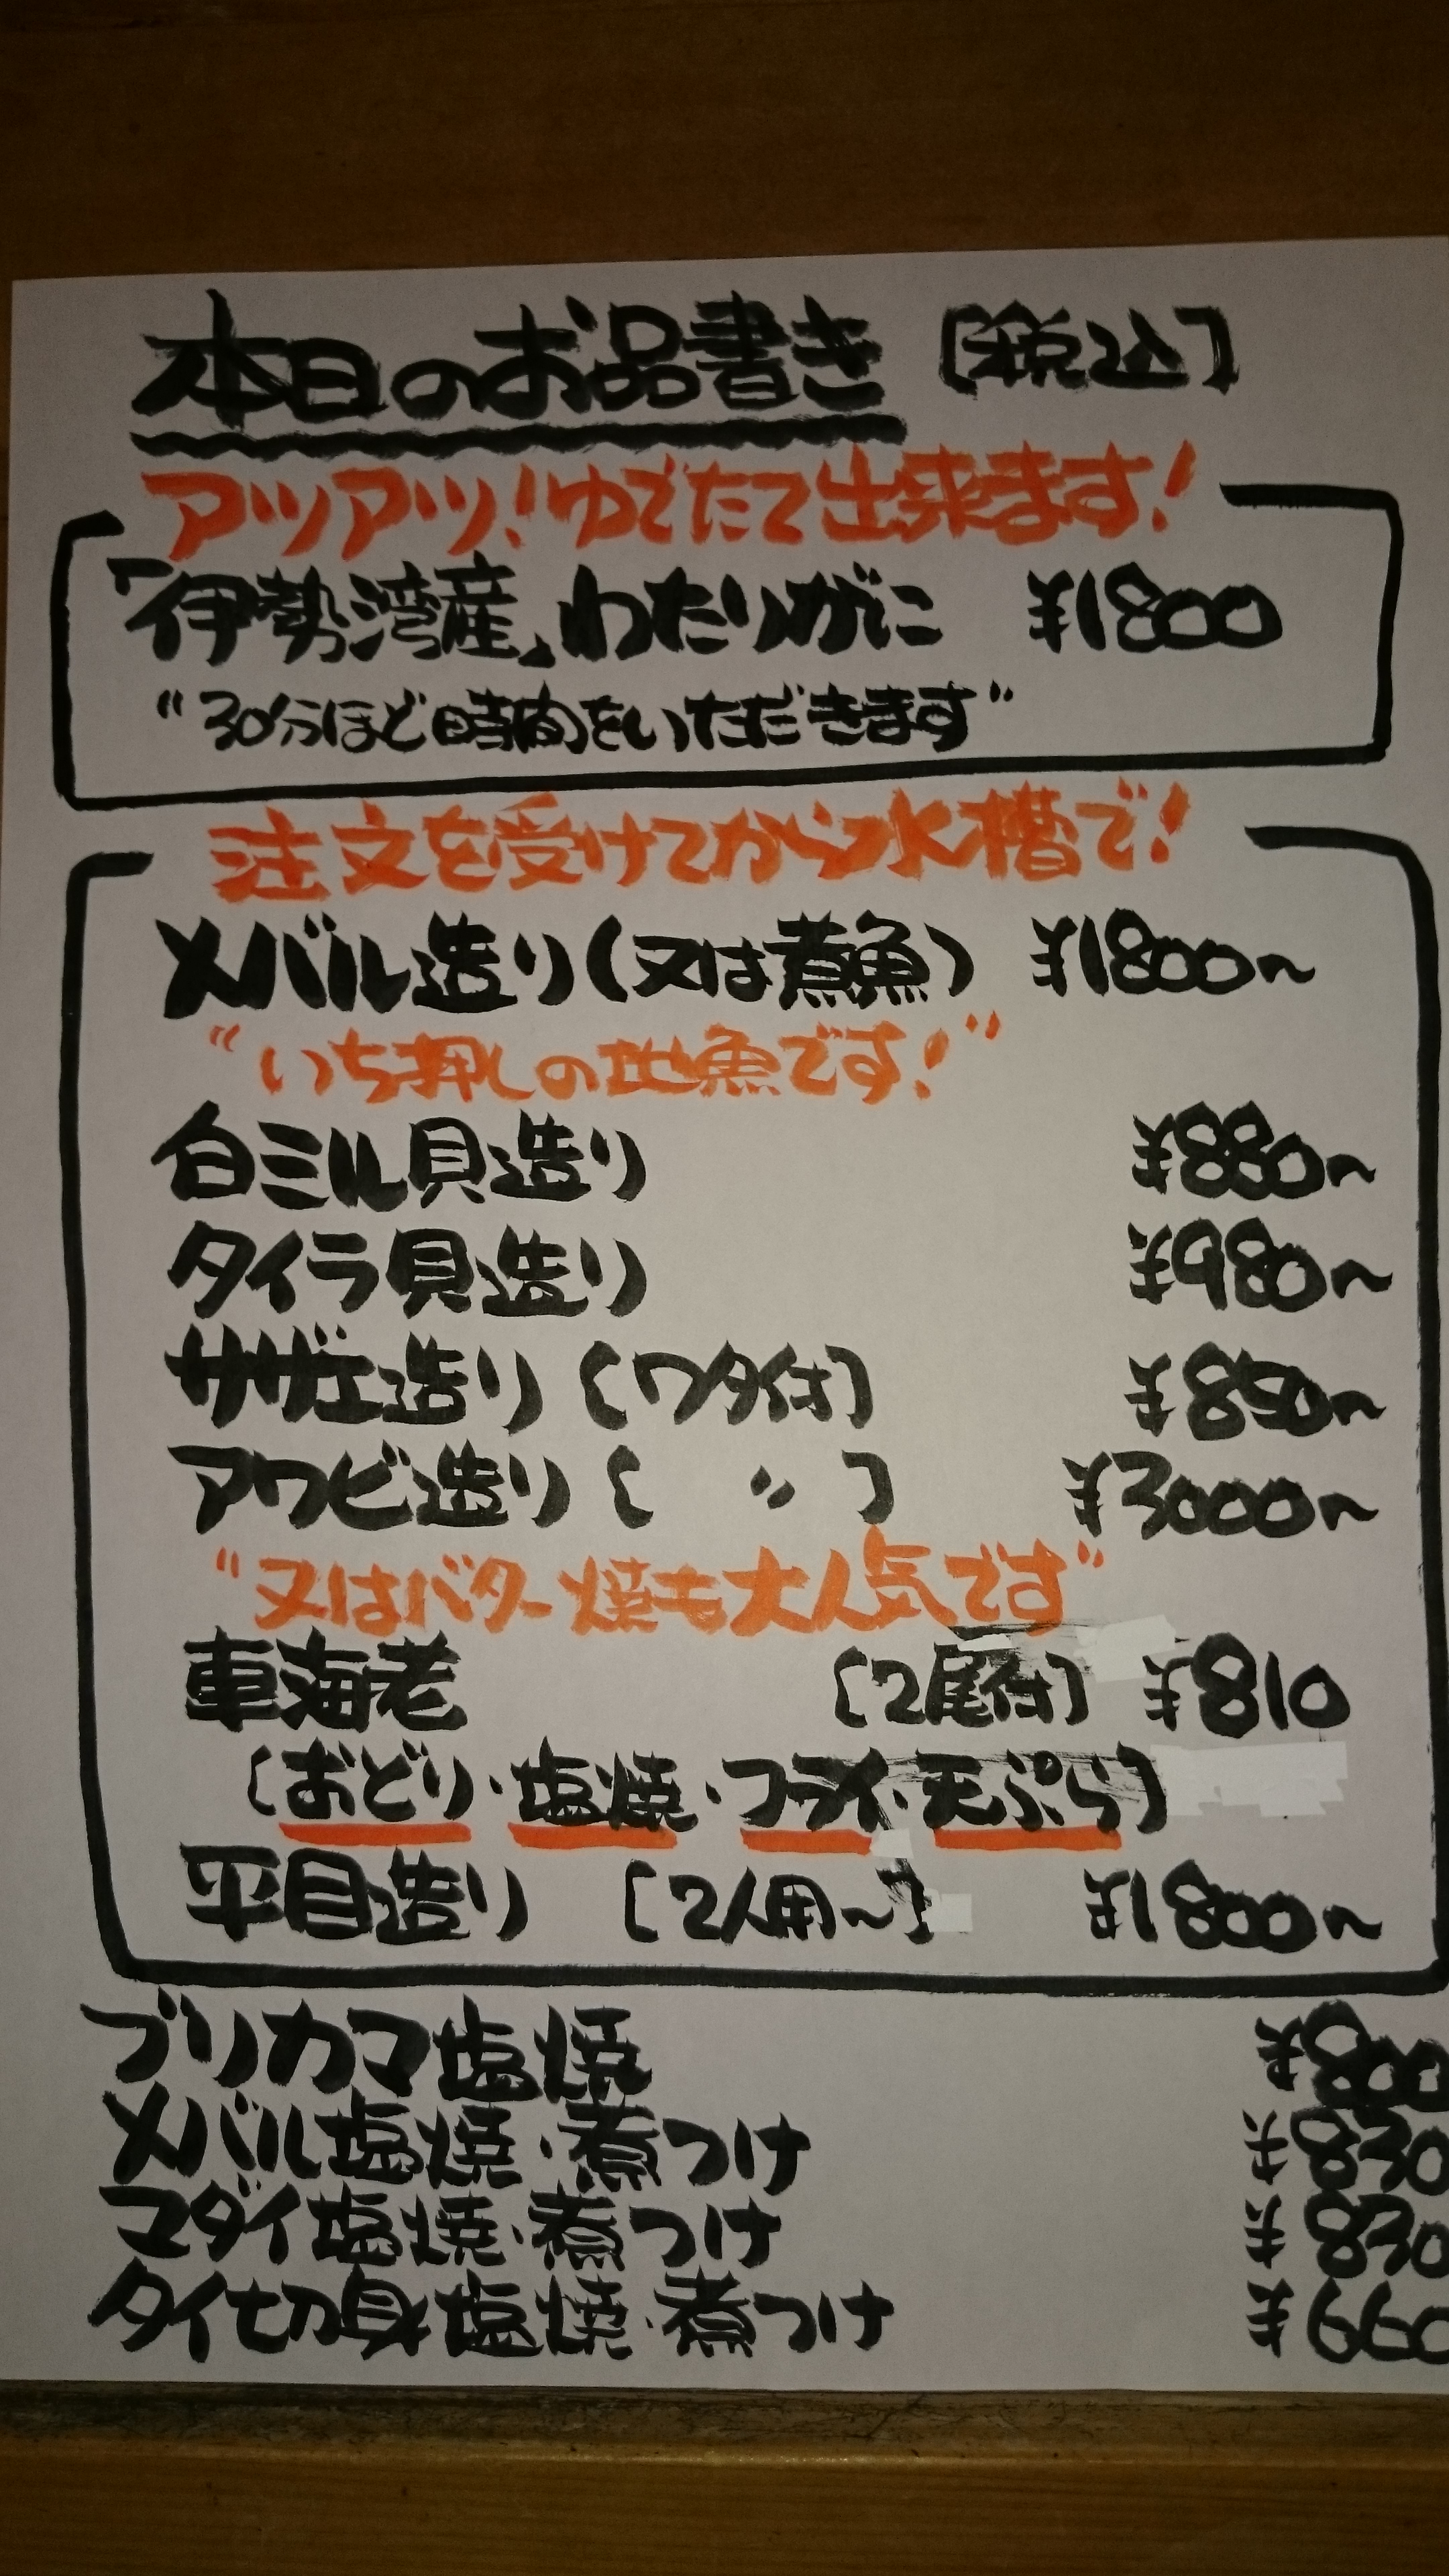 本日のお品書き [税込]
アツアツ!ゆでたて出来ます!
「伊勢湾産」わたりがに ¥1800
"30分ほど時間をいただきます"
注文を受けてから水槽で!
メバル造り(又は煮魚) ¥1800~
"いち押しの地魚です!"
白ミル貝造り ¥880~
タイラ貝造り ¥980~
サザエ造り[ワタ付] ¥850~
アワビ造り[〃] ¥3000~
"又はバター焼も大人気です"
車海老 [2尾付] ¥810
[おどり・塩焼・フライ・天ぷら]
平目造り [2人用~] ¥1800~
ブリカマ塩焼 ¥800
メバル塩焼・煮つけ ¥830
マダイ塩焼・煮つけ ¥830
タイ切身塩焼・煮つけ ¥990